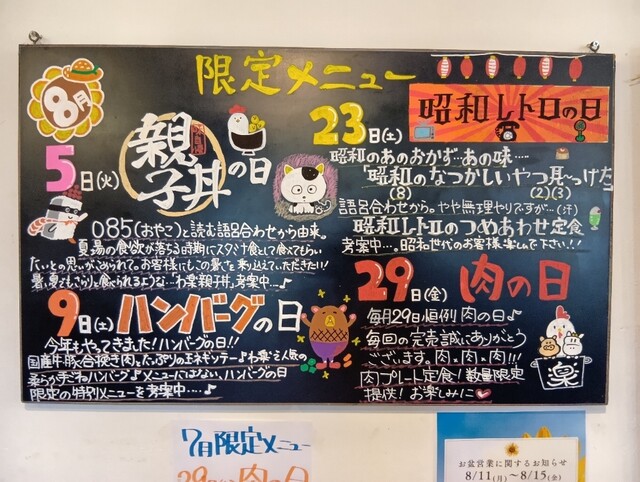 限定メニュー
8月
5日(火)
親子丼の日
085(おやこ)と読む語呂合わせから由来。
夏場の食欲が落ちる時期にスタミナ食として食べてもらい
たいとの思いがこめられて。お客様にもこの暑さを乗り越えていただきたい!
考案中…♪
9日(土)
ハンバーグの日
今年もやってきました!ハンバーグの日!!
国産牛、豚合挽き肉、たっぷりの玉ネギソテー♪
柔らか手ごねハンバーグ♪メニューにはない、ハンバーグの日
限定の特別メニューを考案中…♪
23日(土)
昭和レトロの日
昭和のあのおかず…あの味……
「昭和のなつかしいやつ耳〜っけた
(8) (2)(3)
語呂合わせから。やや無理やりですが…(汗)
昭和レトロのつめあわせ定食
考案中…。昭和世代のお客様、楽しんで下さい!!
29日(金)
肉の日
毎月29日恒例肉の日♪
毎回の完売誠にありがとう
ございます。肉×肉×肉!!!
肉プレート定食!数量限定
提供!お楽しみに
楽
7月限定メニュー
29日(火)肉の日
お盆営業に関するお知らせ
8/11(月)〜8/15(金)